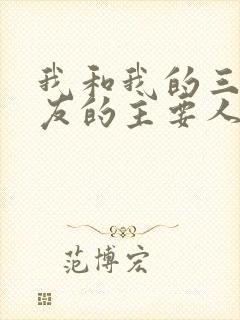 我和我的三
友的主要人
范博宏